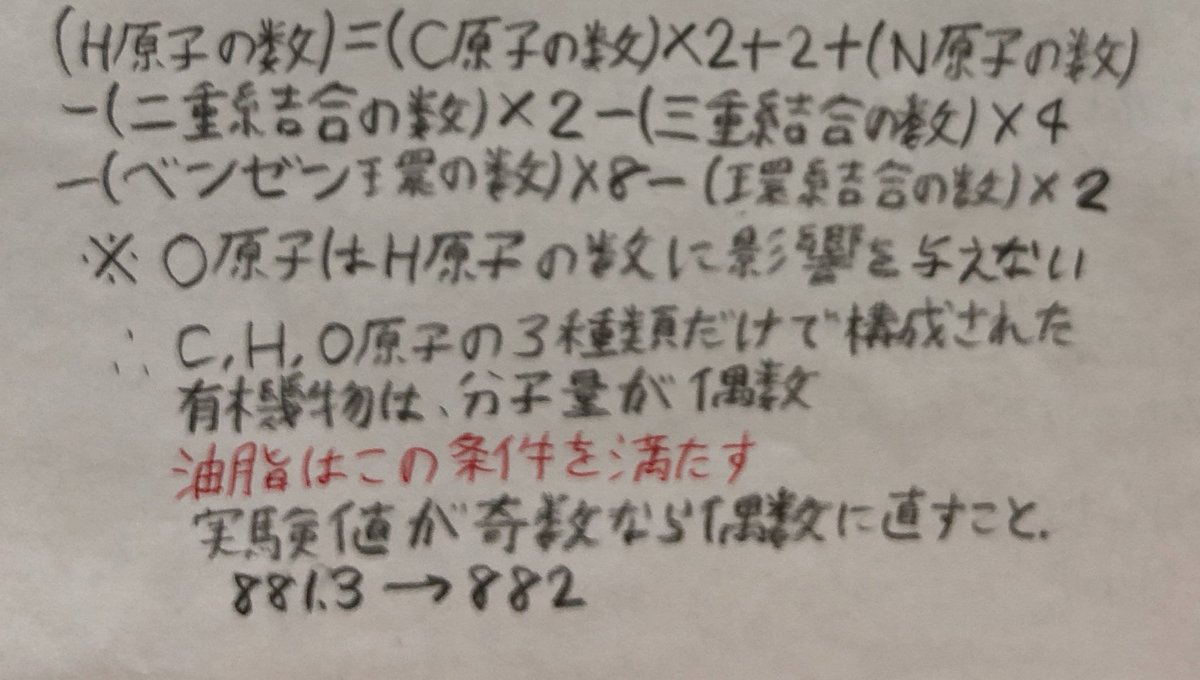 (H原子の数)=(C原子の数)×2+2+(N原子の数)
-(二重結合の数)×2-(三重結合の数)×4
-(ベンゼン環の数)×8-(環結合の数)×2
※ O原子はH原子の数に影響を与えない
∴ C,H,O原子の3種類だけで構成された
有機物は、分子量が偶数
油脂はこの条件を満たす
実験値が奇数なら偶数に直すこと.
881.3→882